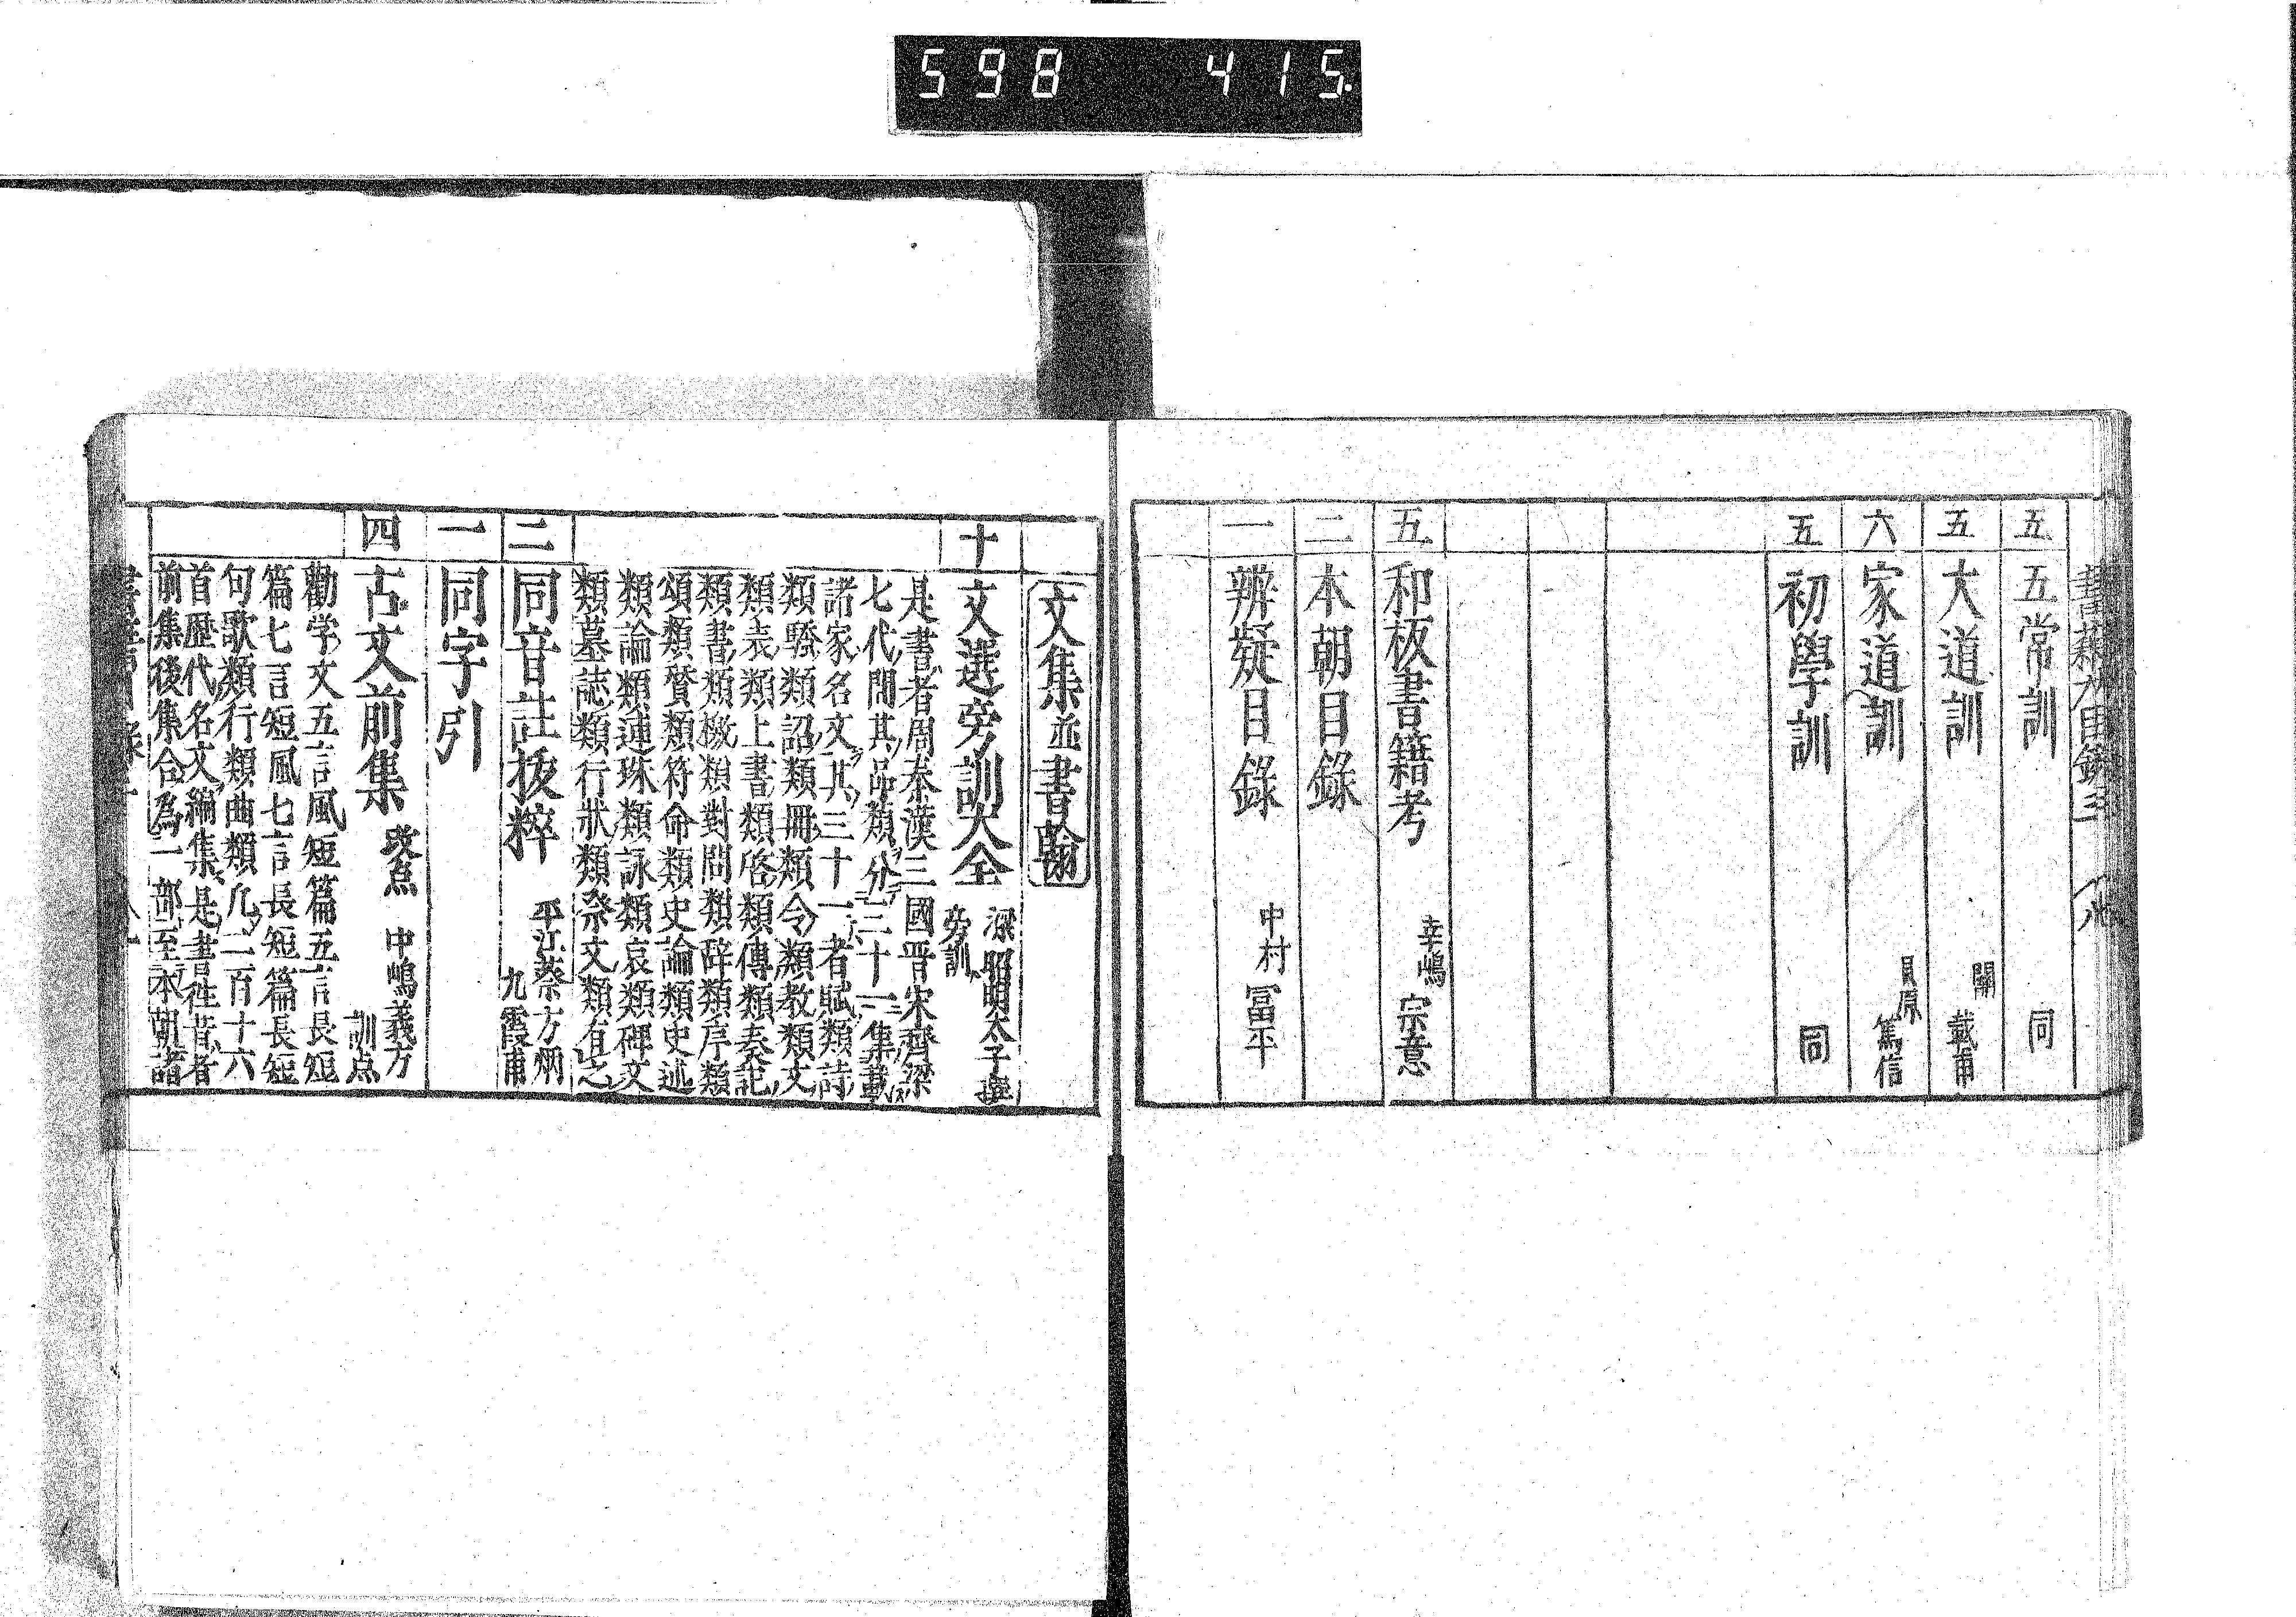 598 415
五 五常訓 同
五 大道訓 關 載甫
六 家道訓 貝原 篤信
五 初學訓 同
五 和板書籍考 幸嶋 宗意
二 本朝目錄
一 辨疑目錄 中村 冨平
文集並書翰
十 文選旁訓大全 梁昭明太子撰 旁訓
是書者周秦漢三國晋宋齊梁
七代間其品類分三十一集載
諸家名文其三十一者賦類詩
類騷類詔類冊類令類教類文
類表類上書類啓類傳類奏記
類書類檄類對問類辞類序類
頌類賛類符命類史論類史述
類論類連珠類詠類哀類碑文
類墓誌類行狀類祭文類有之
二 同音註抜粹 平江蔡方炳 九霞甫
一 同字引
四 古文前集 改点 中嶋義方 訓点
勸学文五言風短篇五言長短
篇七言短風七言長短篇長短
句歌類行類曲類凡二百十六
首歴代名文編集是書徃昔者
前集後集合為一部至本朝諸